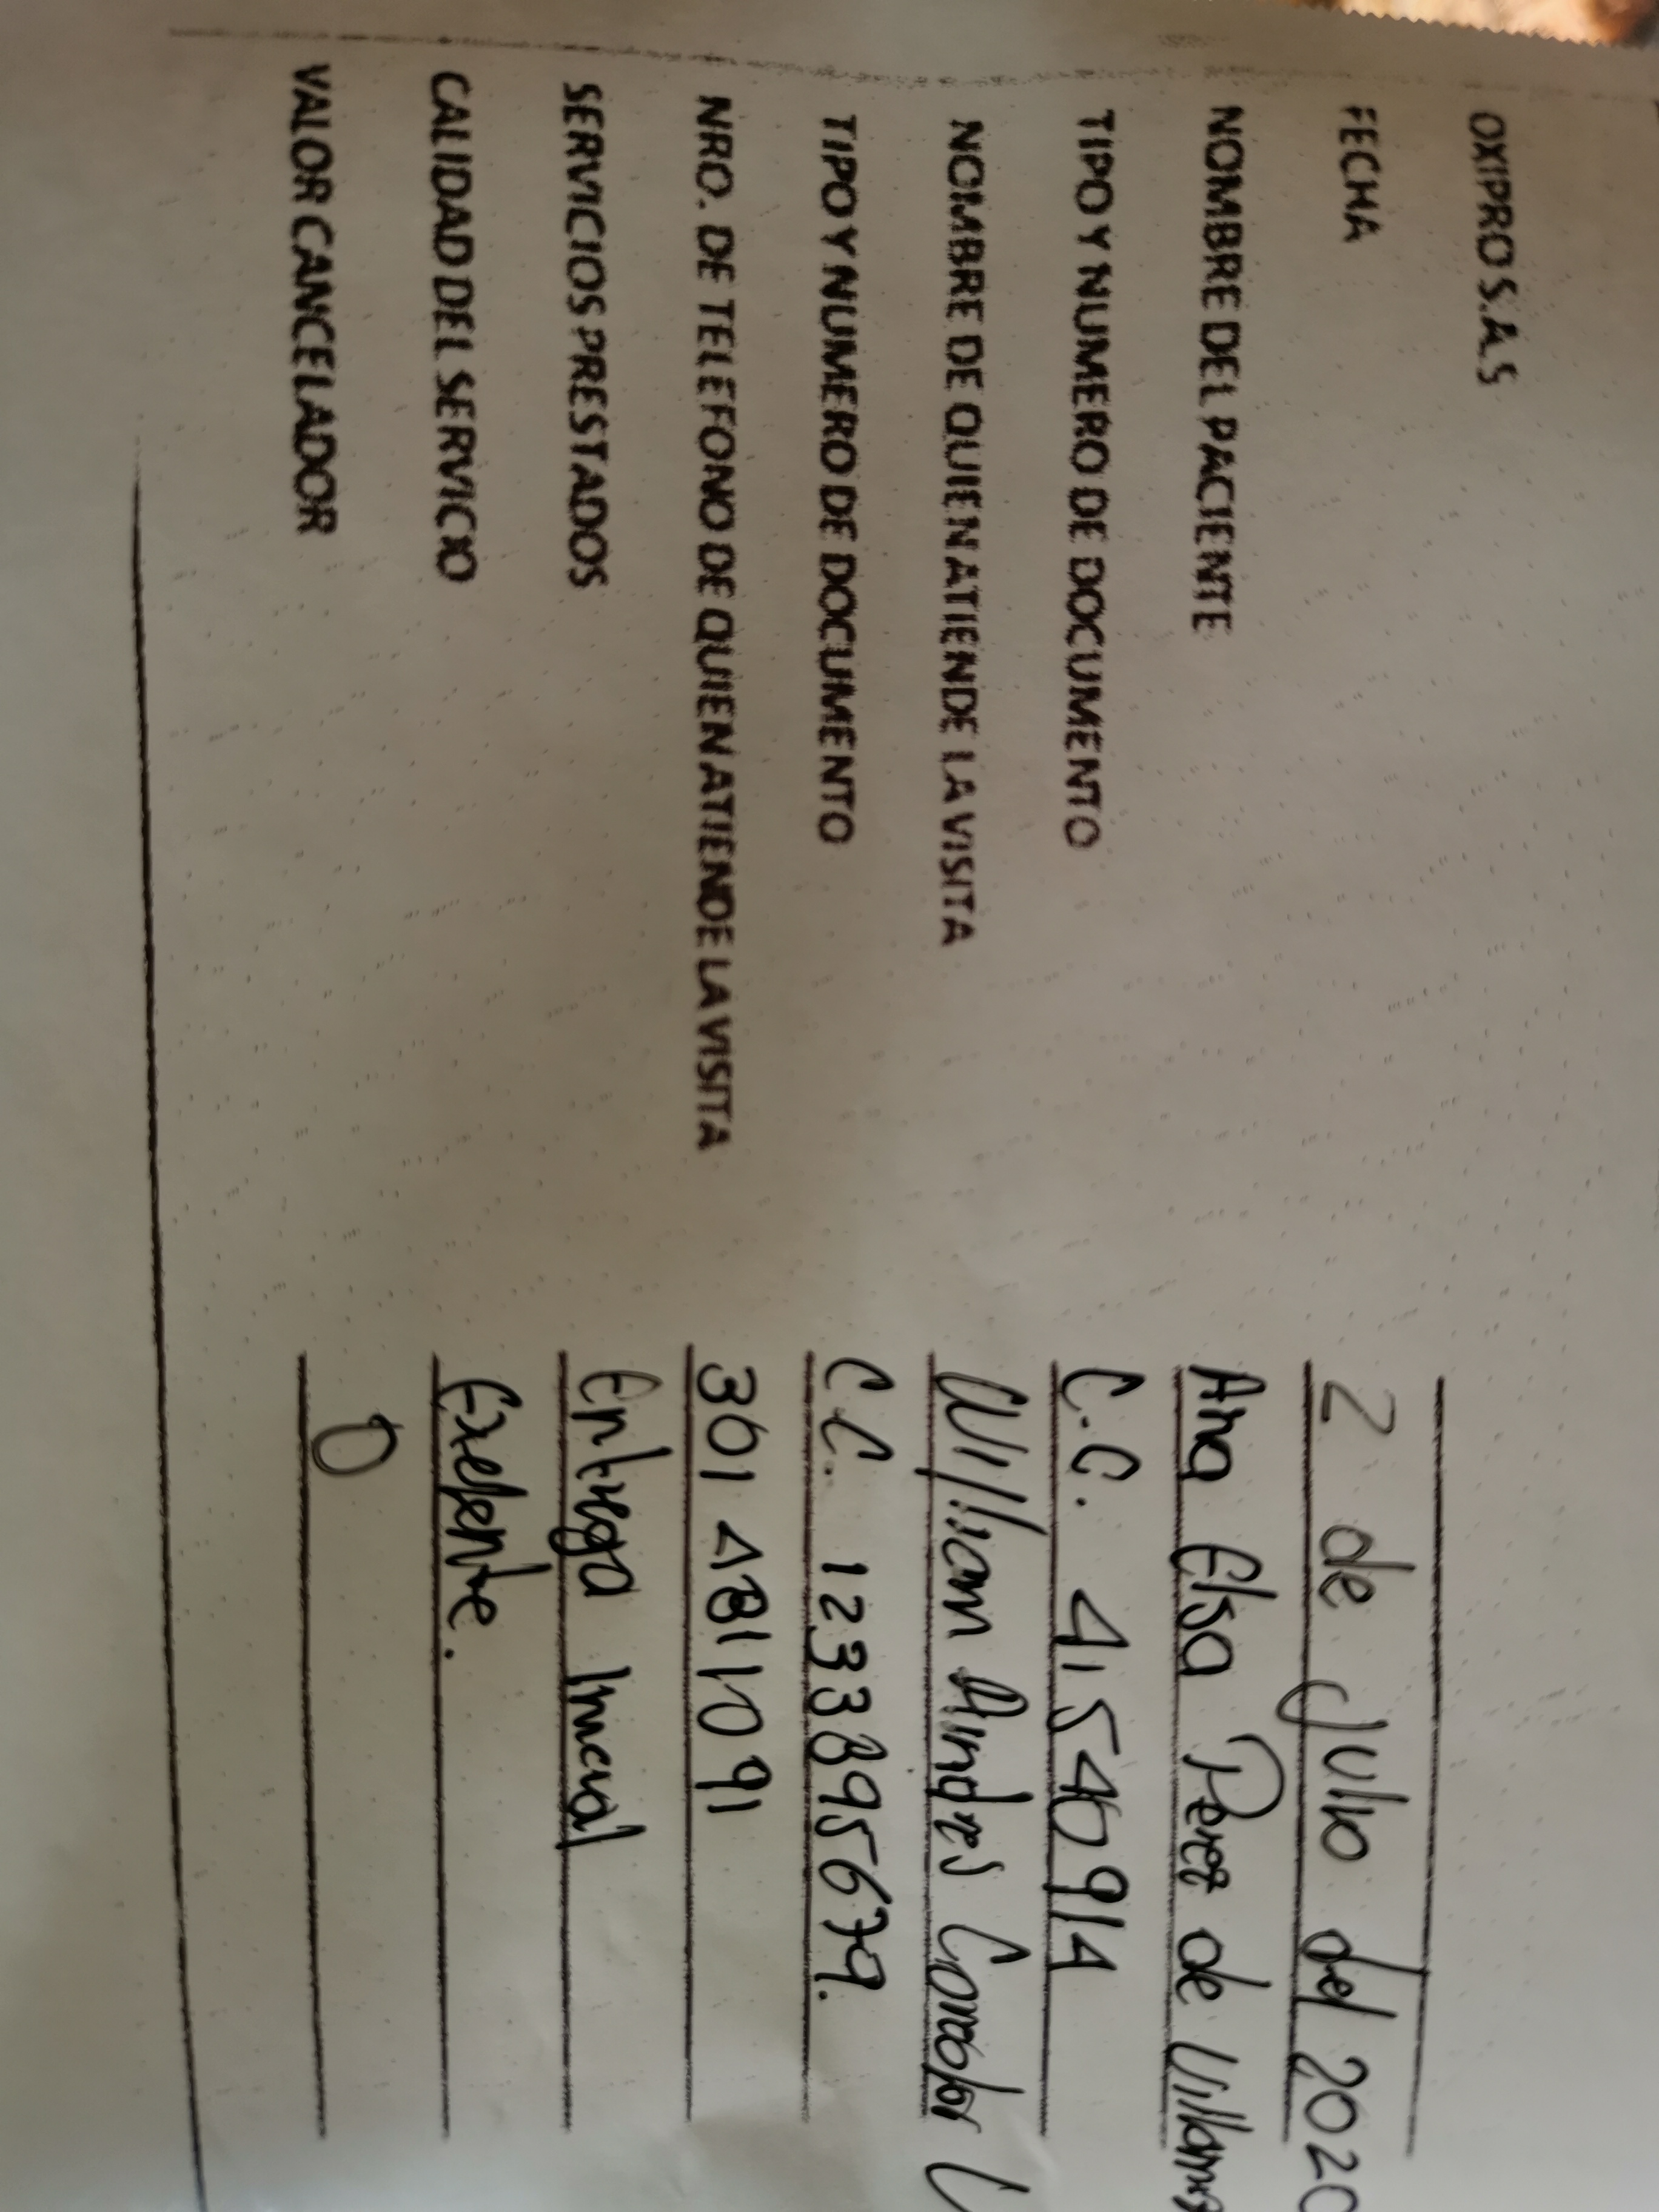 OXIPRO S.A.S
FECHA 2 de Julio del 2020
NOMBRE DEL PACIENTE Ana Elsa Perez de
TIPO Y NUMERO DE DOCUMENTO C.C. 41540914
NOMBRE DE QUIEN ATIENDE LA VISITA William Andres
TIPO Y NUMERO DE DOCUMENTO C.C. 1233895679.
NRO. DE TELEFONO DE QUIEN ATIENDE LA VISITA 301 4811091
SERVICIOS PRESTADOS Entrega
CALIDAD DEL SERVICIO Exelente.
VALOR CANCELADOR 0